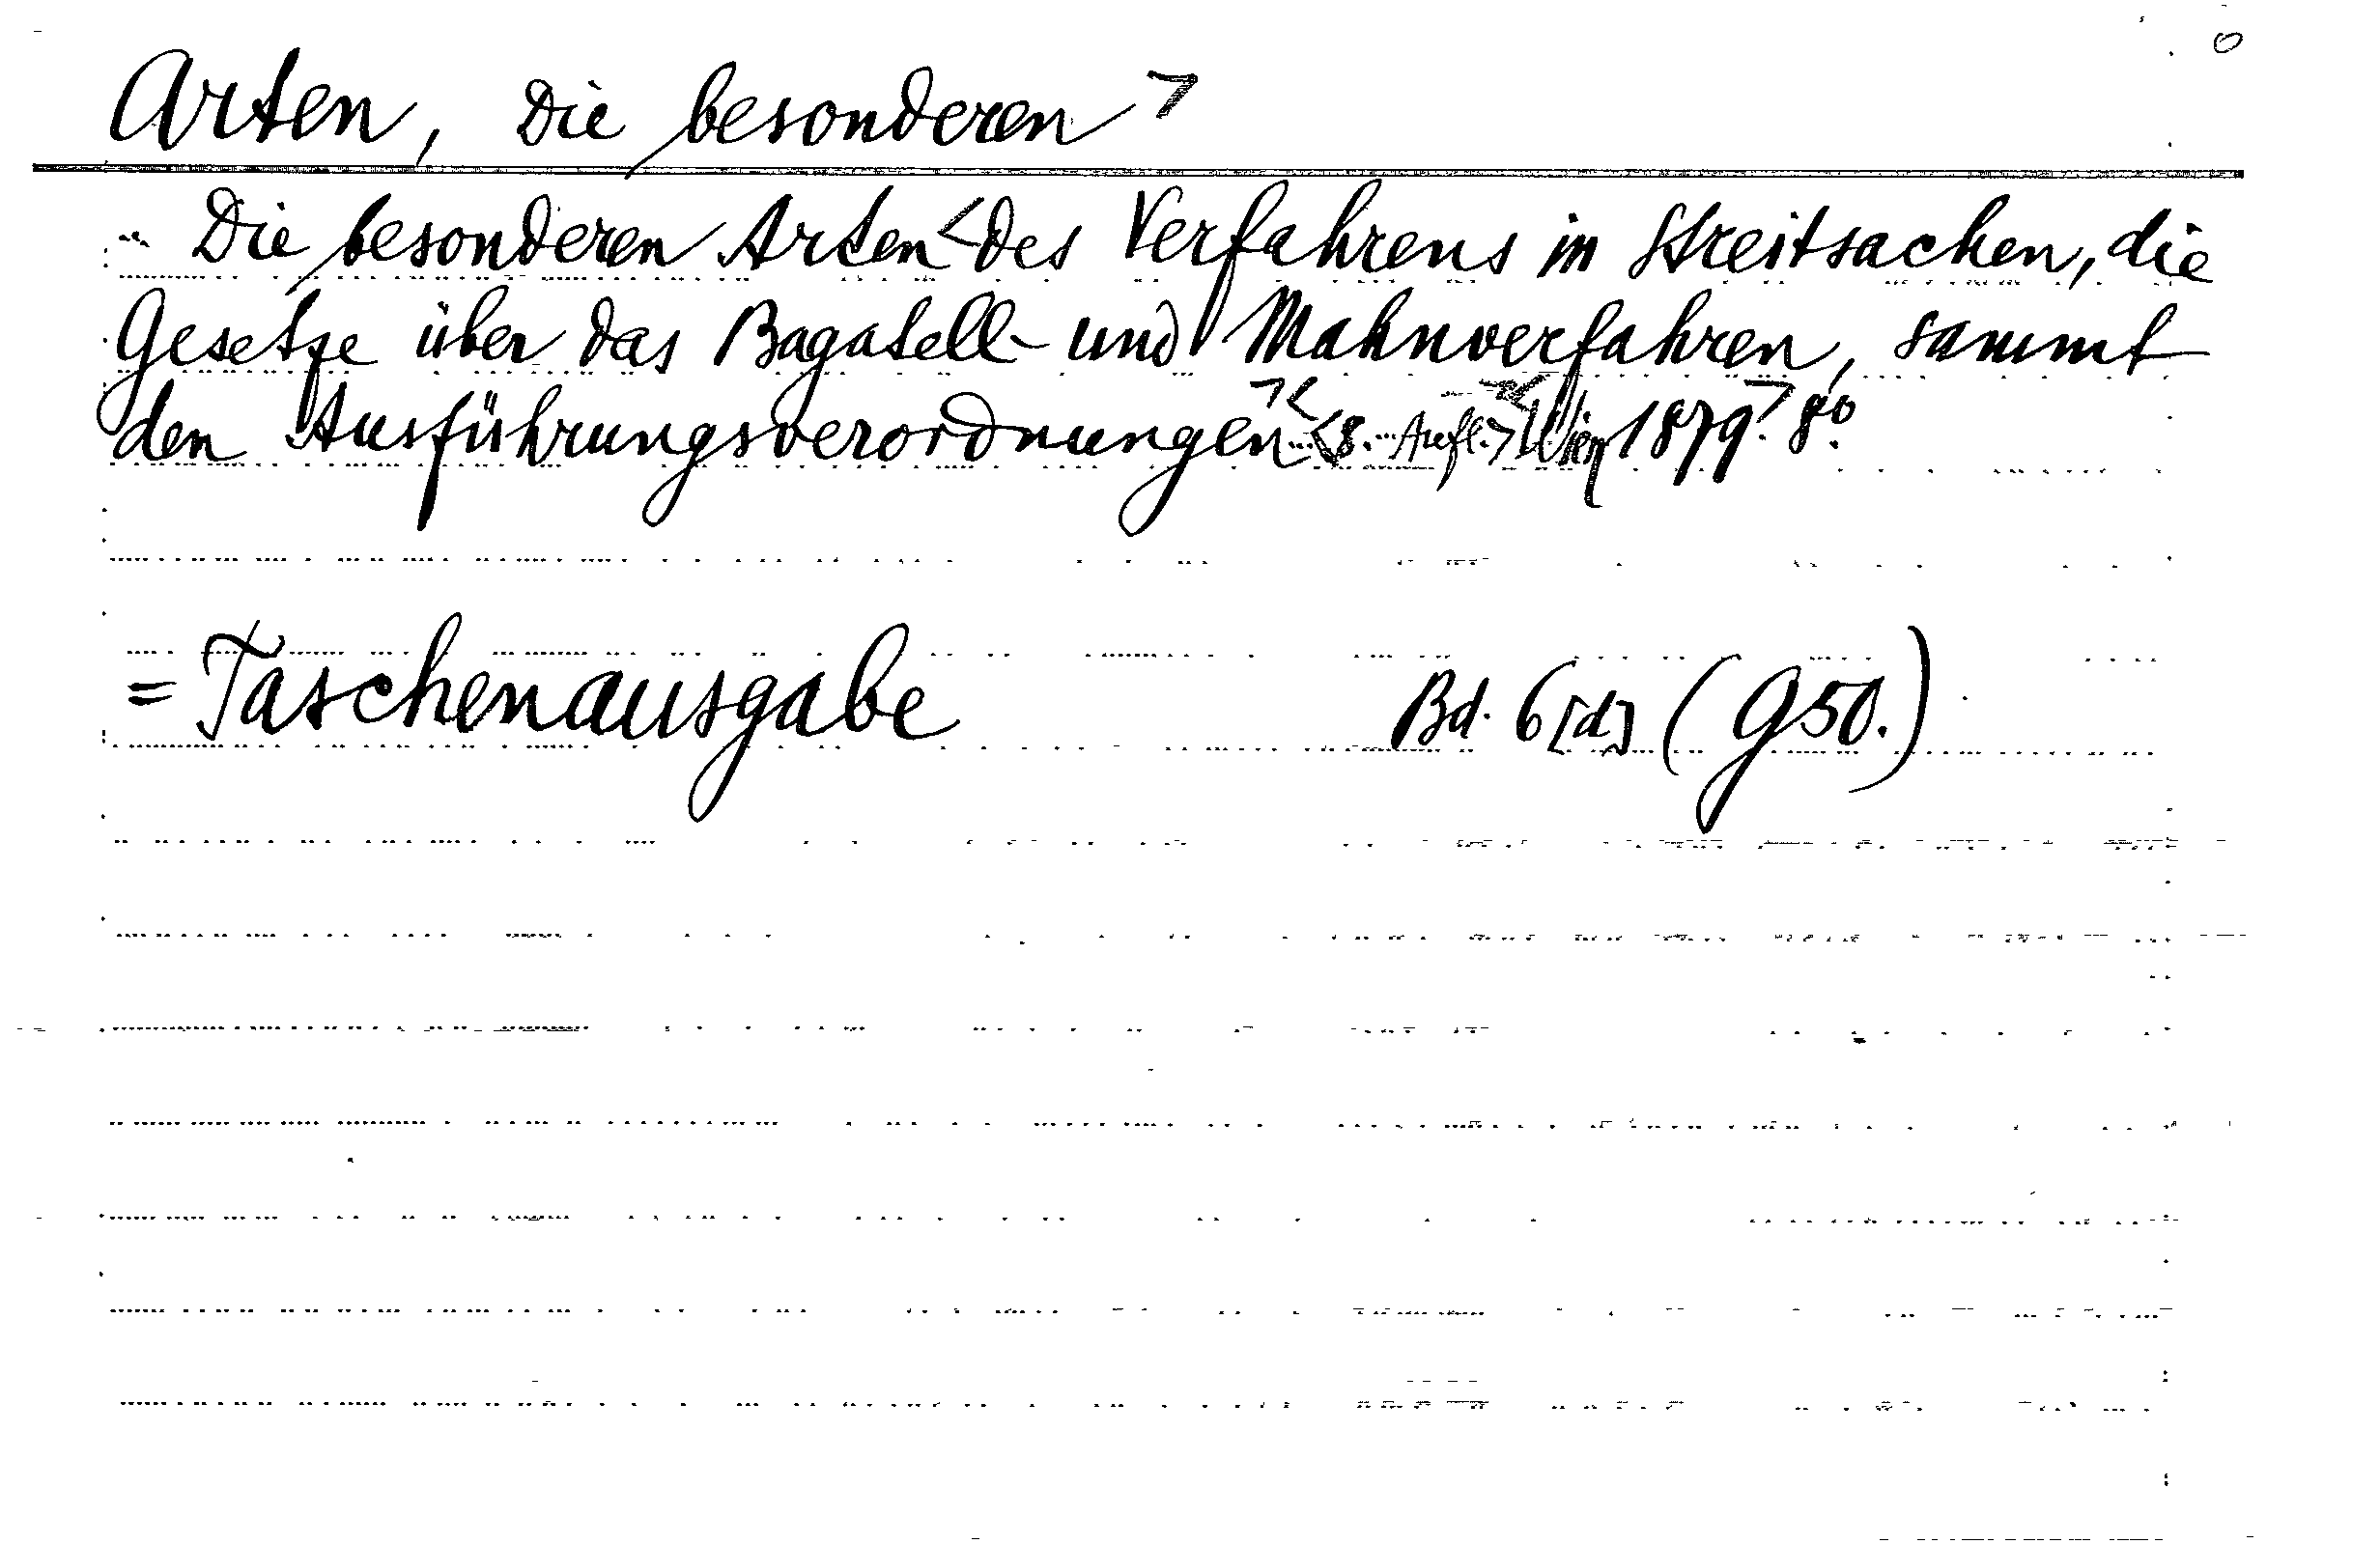 Arten, Die besonderen >
Die besonderen Arten < des Verfahrens in Streitsachen, die
Gesetze über das Bagatell- und Mahnverfahren, sammt
den Ausführungsverordnungen. > < <8. Aufl.> > < Wien 1879. > 8°.
= Taschenausgabe Bd. 6 [d] (G50.)